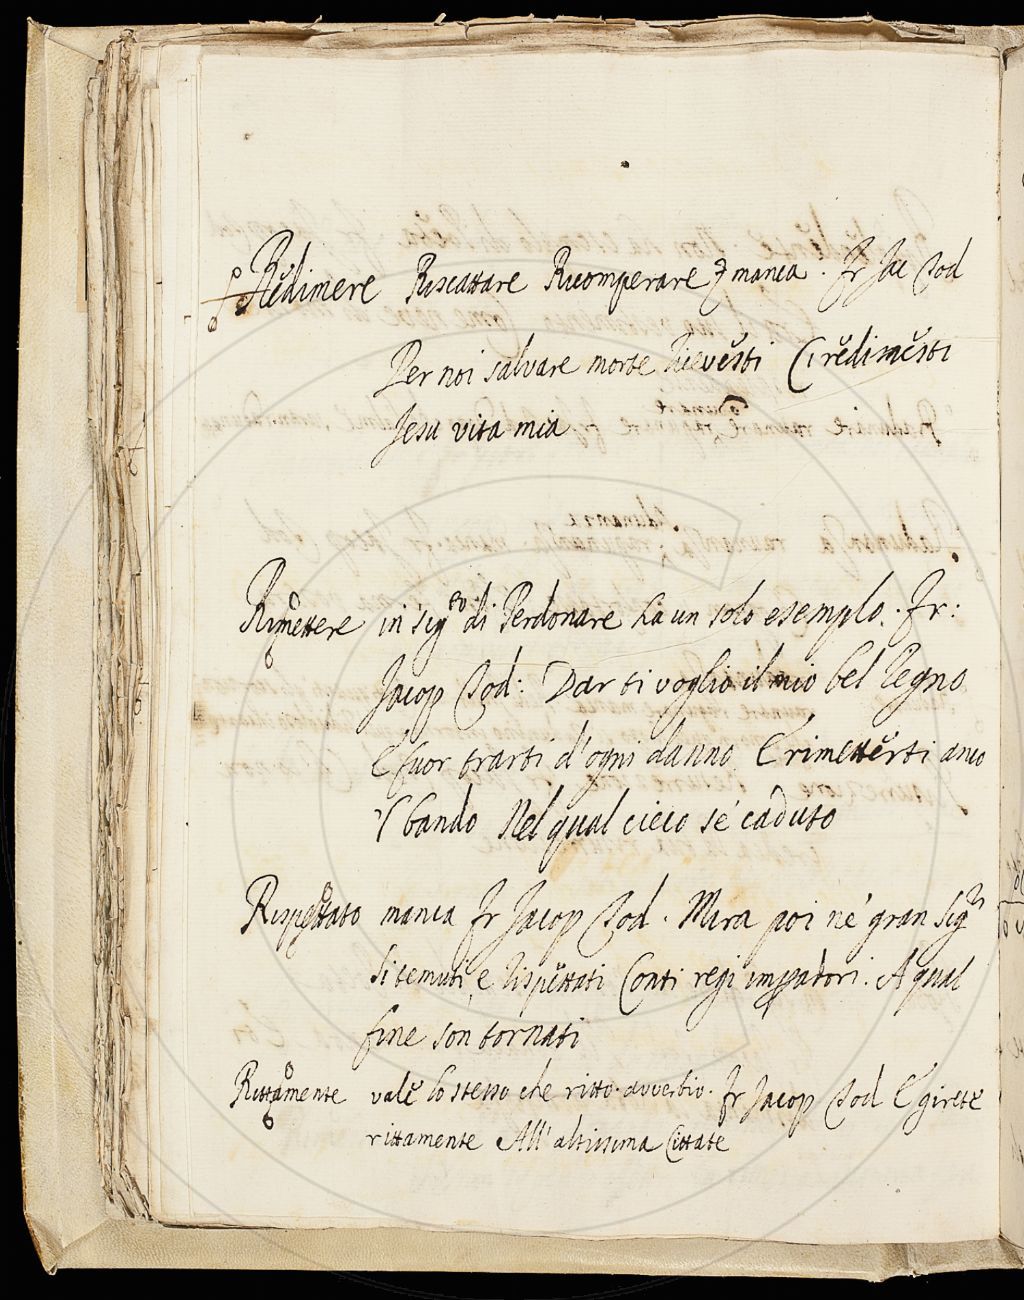 Redimere Riscattare Ricomperare manca. Fr Jac Tod
Per noi salvare morte Ricevesti Ci redimesti
Jesu vita mia
Rimettere in sig.to di Perdonare ha un solo esempio. Fr:
Jacop Tod: Dar ti voglio il mio bel Regno
E fuor trarti d'ogni danno E rimetterti anco
'l bando Nel qual cieco sé caduto
Rispettato manca Fr Jacop Tod. Mira poi né gran Sig.ri
Si temuti, e rispettati Conti regi impadori. A qual
fine son tornati
Rittamente vale lo stesso che ritto. avverbio. Fr Jacop Tod E girete
rittamente All'altissima Cittate